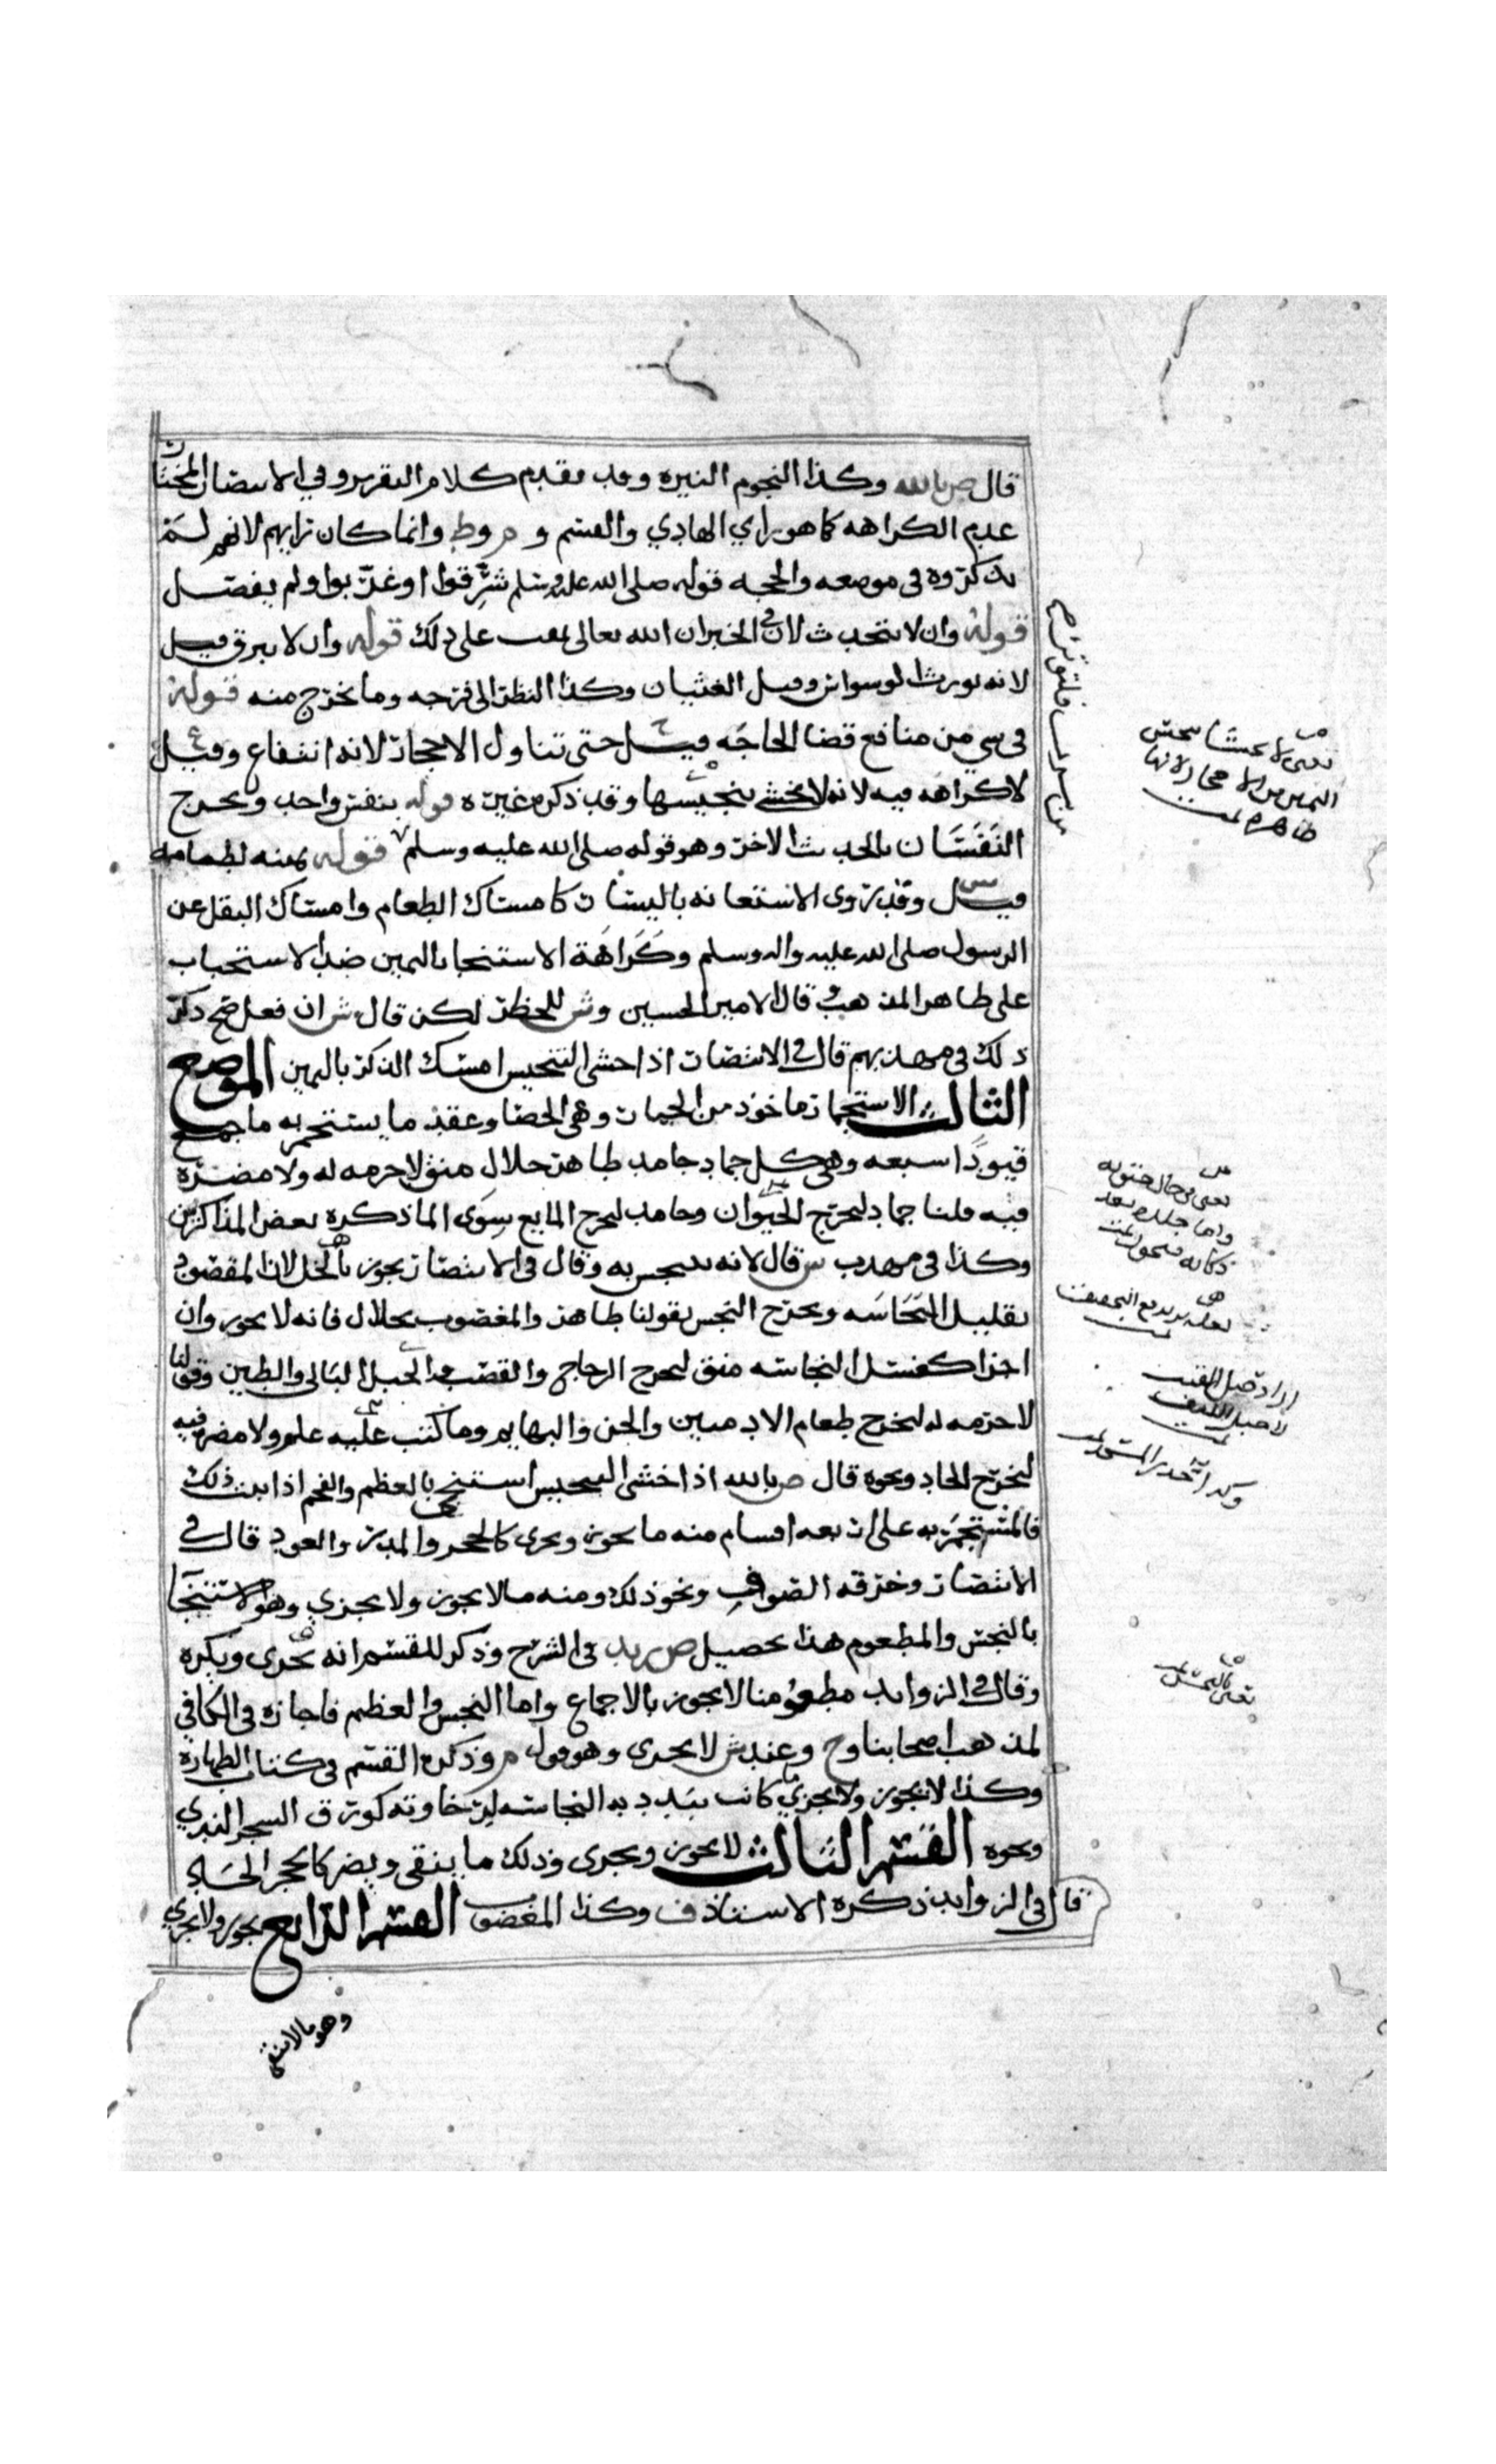 قال ص بالله وكذا النجوم النيره وقد تقدم كلام التقرير وفي الانتصار المختار
عدم الكراهه كما هو راي الهادي والقسم و م و ط وانما كان رايهم لانهم لم
يذكروه في موضعه والحجه قوله صلى الله عليه وسلم شرقوا او غربوا ولم يفصل
قوله وان لا يتحدث لان في الخبر ان الله تعالى يمقت على ذلك قوله وان لا يبرق قيل
لانه يورث الوسواس وقيل الغثيان وكذا النظر الى فرجه وما يخرج منه قوله
في شي من منافع قضا الحاجه قيل حتى تناول الاحجار لانه انتفاع وقيل
لا كراهه فيه لانه لا يخشى تنجيسها وقد ذكره غيره قوله بنفس واحد ويخرج
النفسان بالحديث الاخر وهو قوله صلى الله عليه وسلم قوله يمينه لطعامه
قيل وقد روي الاستعانه باليسار كامساك الطعام وامساك البقل عن
الرسول صلى الله عليه واله وسلم وكراهة الاستنجا باليمين ضد الاستحباب
على ظاهر المذهب قال الامير الحسين وش للحظر لكن قال ش ان فعل صح ذكر
ذلك في مهذبهم قال في الانتصار اذا خشي التنجيس امسك الذكر باليمين الموضع
الثالث الاستجمار ماخوذ من الجمار وهي الحصا وعقد ما يستجمر به ما جمع
قيودا سبعه وهي كل جماد جامد طاهر حلال منق لا حرمه له ولا مضره
فيه قلنا جماد ليخرج الحيوان وجامد ليخرج المايع سوى الما ذكره بعض المذاكرين
وكذا في مهذب ش قال لانه ينجس به وقال في الانتصار يجوز بالخل لان المقصود
تقليل النجاسه ويخرج النجس بقولنا طاهر والمغصوب بحلال فانه لا يجوز وان
اجزا كغسل النجاسه منق ليخرج الزجاج والقصب والحبل البالي والطين وقولنا
لا حرمه له ليخرج طعام الادميين والجن والبهايم وما كتب عليه علم ولا مضره فيه
ليخرج الحاد ونحوه قال ص بالله اذا خشي التنجيس استنجى بالعظم والفحم اذا ثبت ذلك
فالمستجمر به على اربعه اقسام منه ما يجوز ويجزي كالحجر والمدر والعود قال في
الانتصار وخرقه الصوف ونحو ذلك ومنه ما لا يجوز ولا يجزي وهو الاستنجا
بالنجس والمطعوم هذا تحصيل ص زيد في الشرح وذكر للقسم انه يجزي ويكره
وقال في الزوايد مطعومنا لا يجوز بالاجماع واما النجس والعظم فاجازه في الكافي
لمذهب اصحابنا وح وعند ش لا يجزي وهو قول م وذكره القسم في كتاب الطهاره
وكذا لا يجوز ولا يجزي ما كانت تبدد به النجاسه لرخاوته كورق الشجر الندي
ونحوه القسم الثالث لا يجوز ويجزي وذلك ما ينقي ويضر كالحجر الحاد
قال في الزوايد ذكره الاستاذ ف وكذا المغصوب القسم الرابع يجوز ولا يجزي
وهو ما لا ينقي